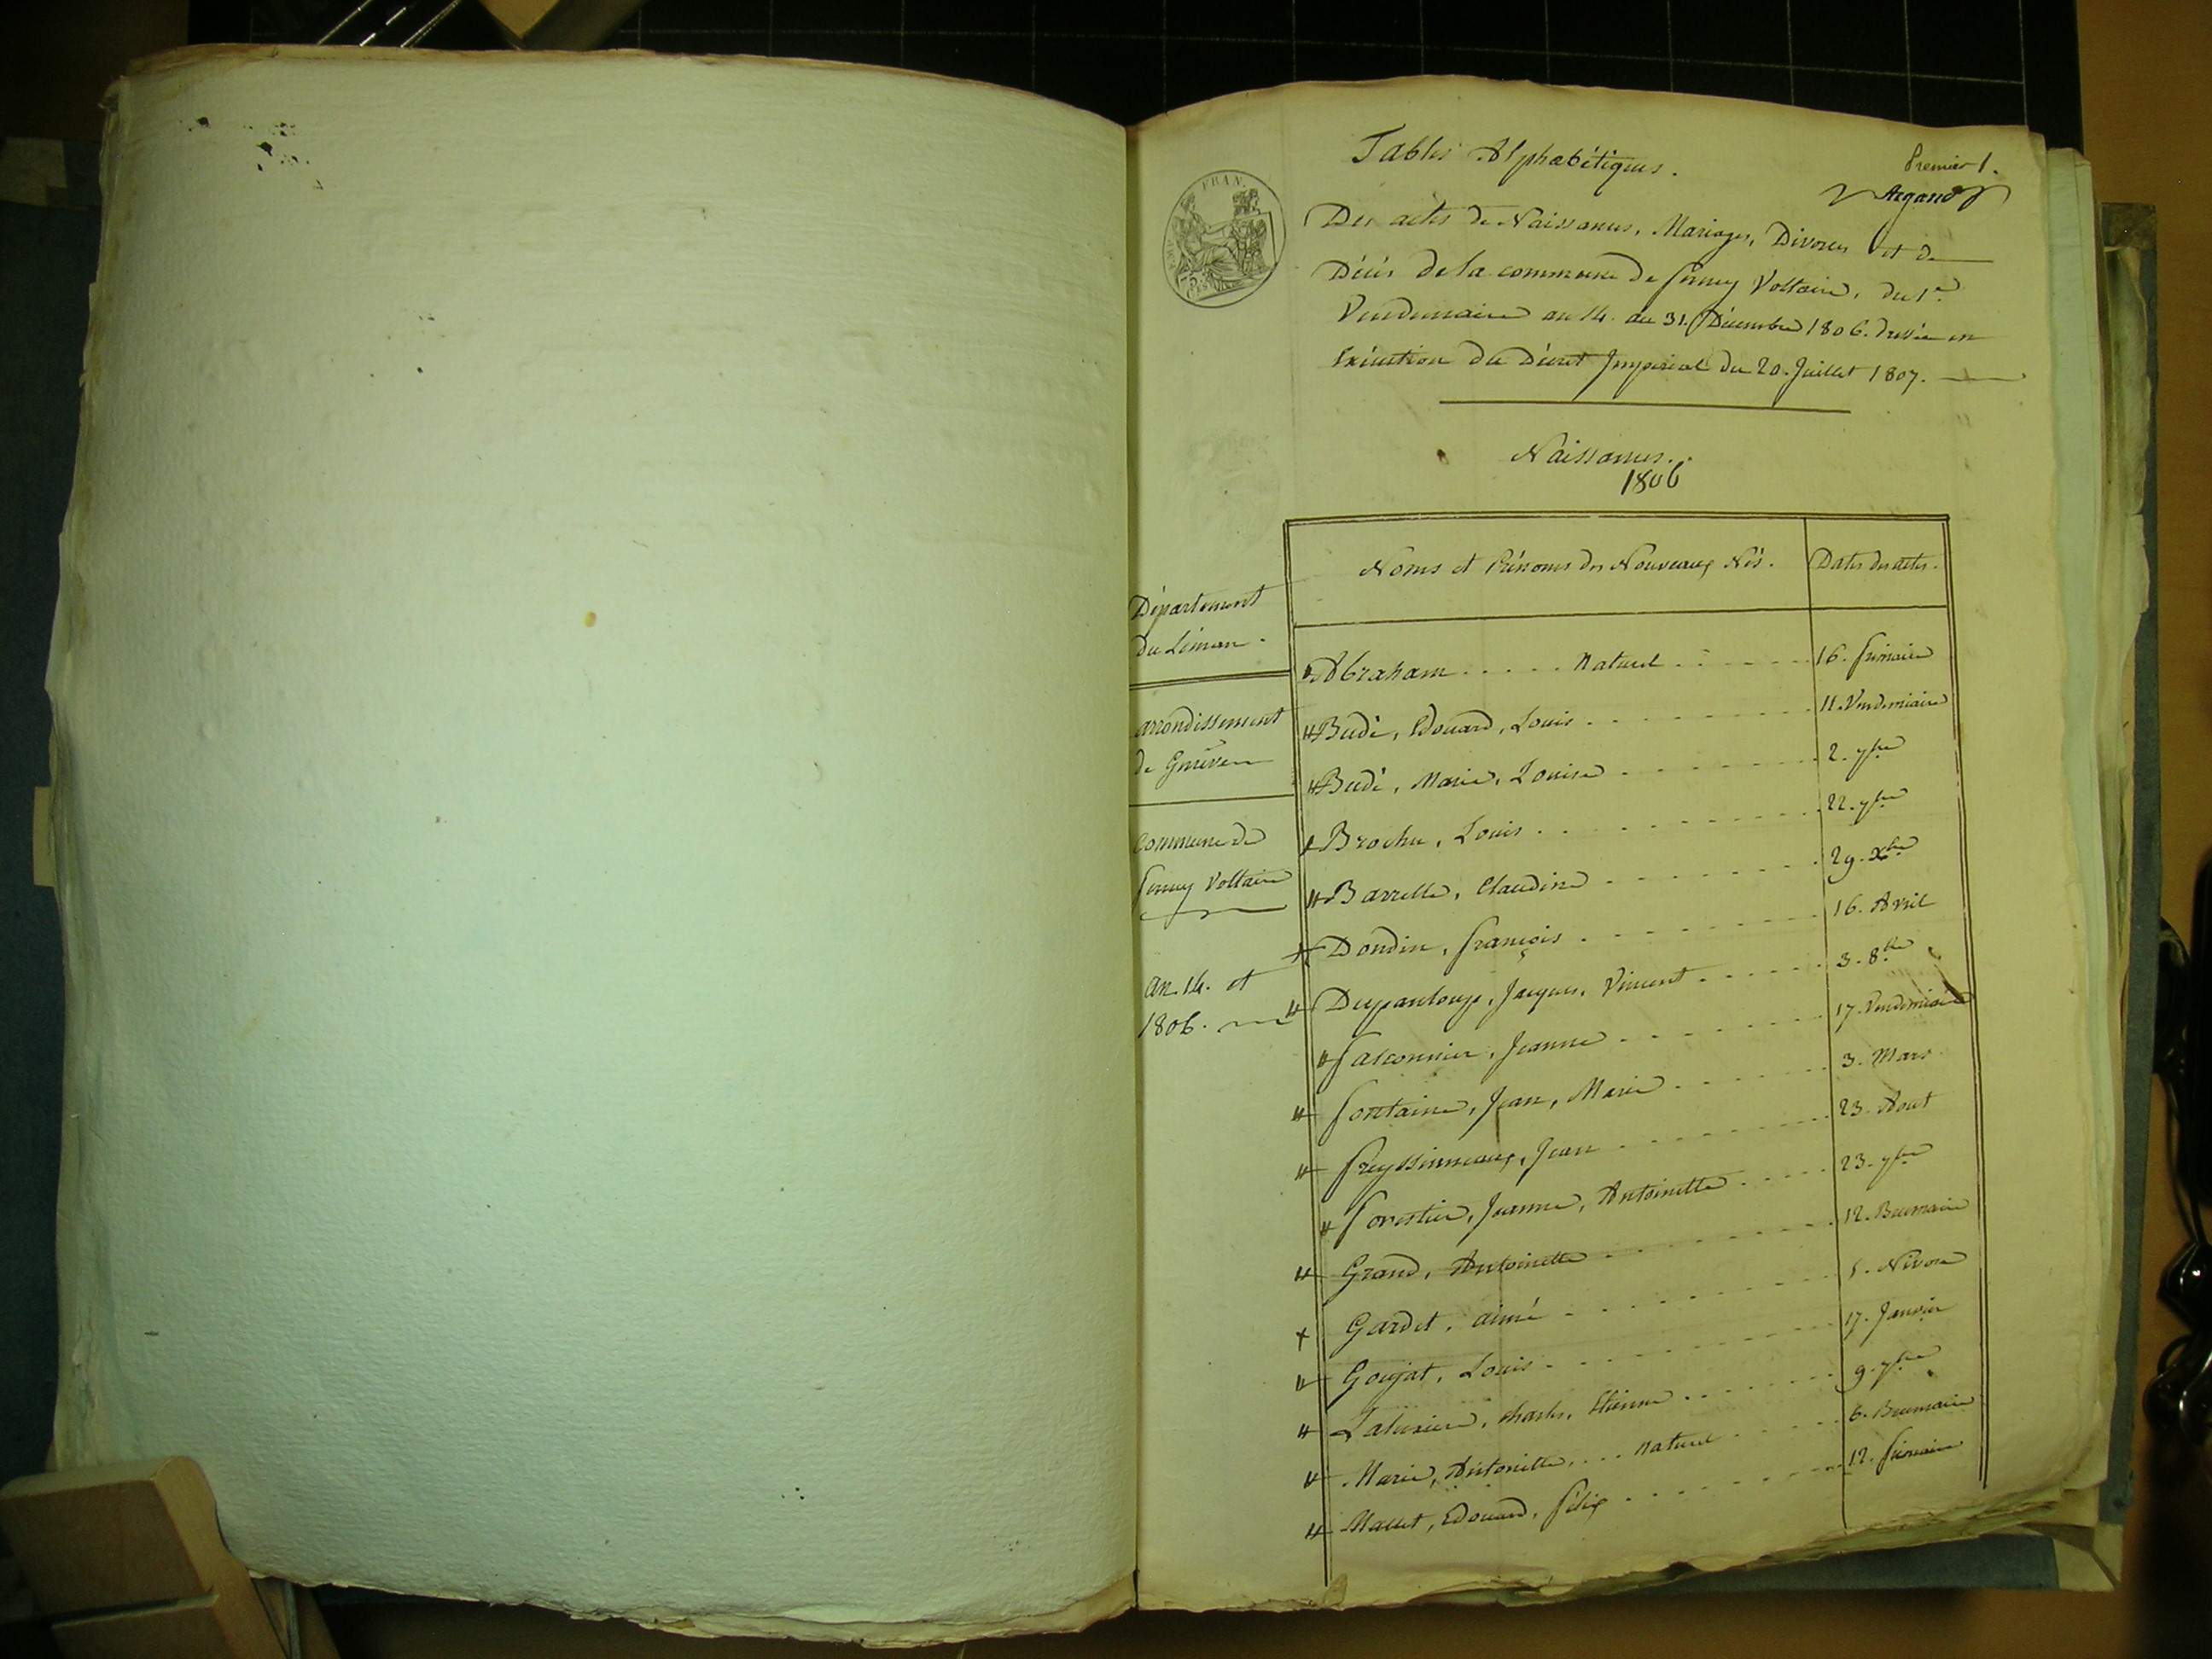 Tables Alphabétiques.
Premier 1.
Argand
Des actes de Naissances, Mariages, Divorces et de
Décès de la commune de ferney Voltaire, du 1er
Vendemiaire an 14. au 31. Décembre 1806. dressée en
Exécution du Décret Impérial du 20. Juillet 1807.
FRAN.
Naissances.
1806
Noms et Prénoms des Nouveaux Nés. Dates des actes.
Département
du Léman.
arrondissement
de Genève
commune de
ferney Voltaire
an. 14. et
1806.
Abraham . . . . . Naturel . . . . . 16. frimaire
Budé, Edouard, Louis . . . . . 11. Vendemiaire
Budé, Marie, Louise . . . . . 2. 7bre
Brochu, Louis . . . . . 22. 7bre
Barrelle, Claudine . . . . . 29. Xbre
Dondin, françois . . . . . 16. Avril
Dupanloup, Jacques, Vincent . . . . . 3. 8bre
falconnier, Jeanne . . . . . 17. Vendemiaire
fontaine, Jean, Marie . . . . . 3. Mars
freyssinneaux, Jean . . . . . 23. Aout
forestier, Jeanne, Antoinette . . . . . 23. 7bre
Grand, Antoinette . . . . . 12. Brumaire
Gardet, aimé . . . . . 1. Nivose
Goujat, Louis . . . . . 17. Janvier
charles, Etienne . . . . . 9. 7bre
Marie, Antoinette, . . . Naturel . . . . . 6. Brumaire
Mallet, Edouard, félix . . . . . 12. frimaire